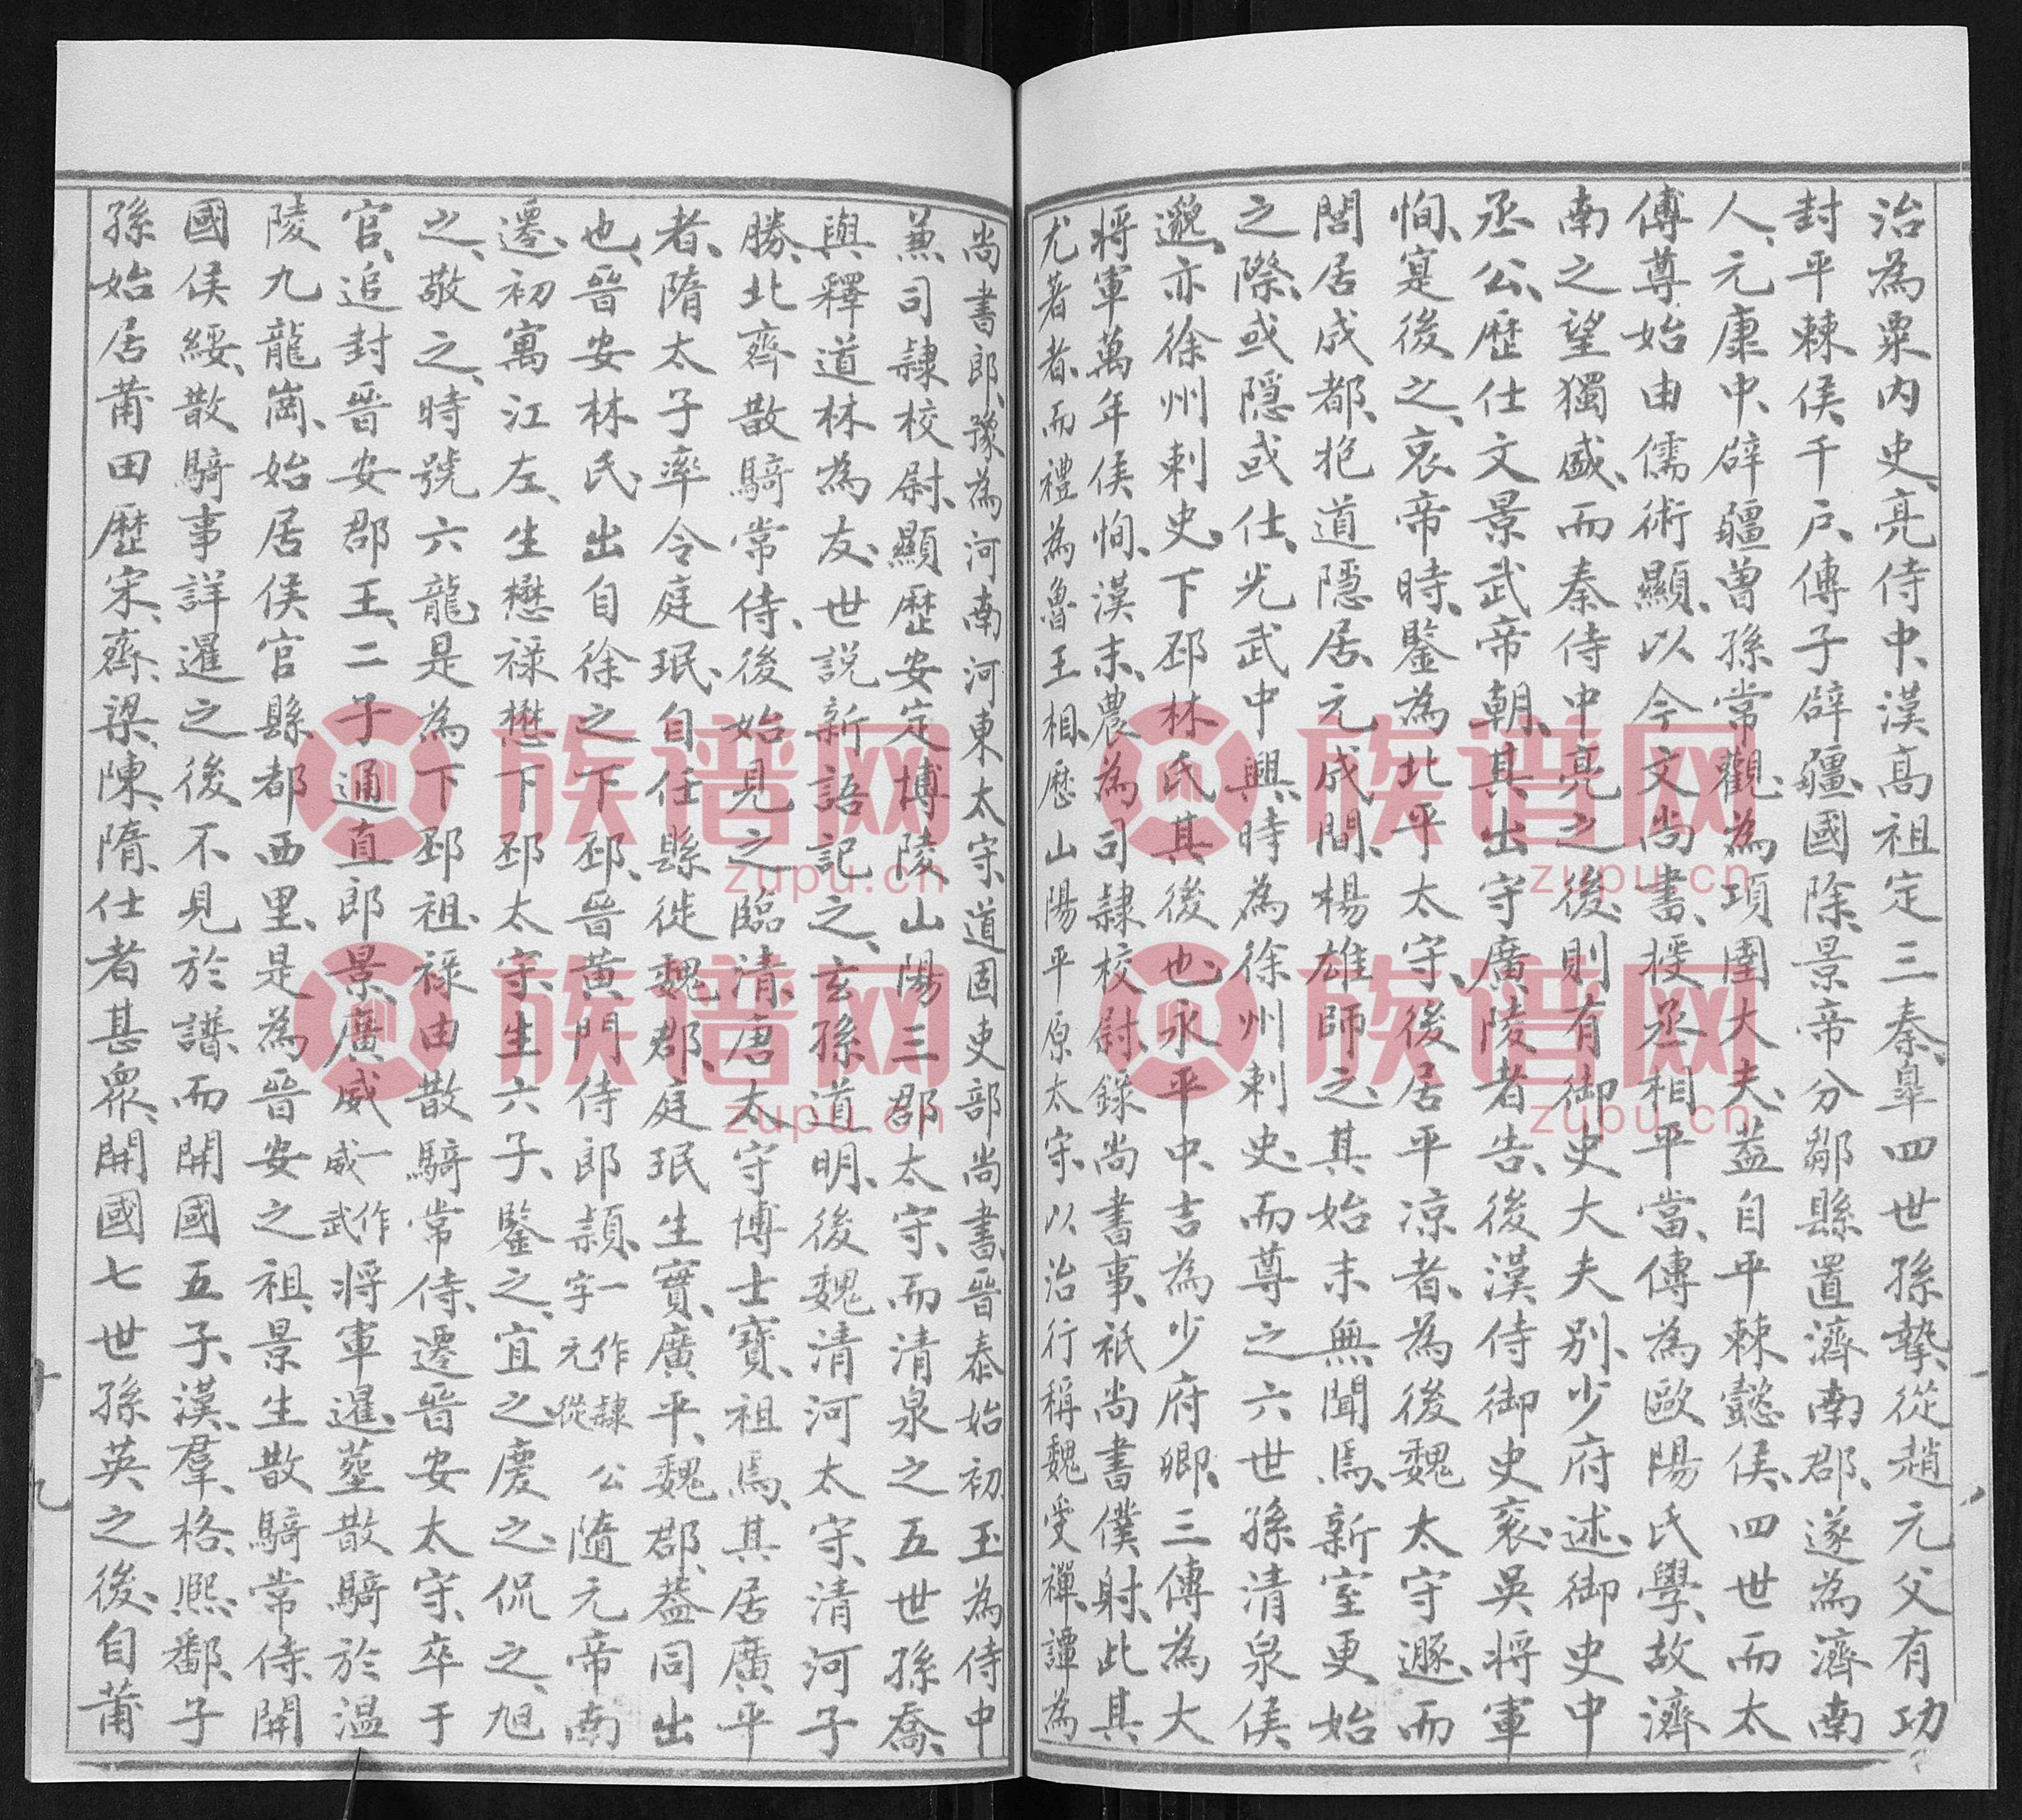 治為粟內史、亮侍中、漢高祖定三秦、皐四世孫摯從趙元父有功
封平棘侯、千戶、傳子辟疆、國除、景帝分鄒縣置濟南郡、遂為濟南
人、元康中、辟疆曾孫常觀為項圉大夫、益自平棘懿侯、四世而太
傅尊始由儒術顯、以今文尚書、授丞相平當、傳為歐陽氏學、故濟
南之望獨盛、而秦侍中亮之後、則有御史大夫別、少府述、御史中
丞公、歷仕文景武帝朝、其出守廣陵者告、後漢侍御史袤、吳將軍
恂、寔後之、哀帝時、鑒為北平太守、後居平凉者、為後魏太守遯、而
閭居成都、抱道隱居、元成間、楊雄師之、其始末無聞焉、新室更始
之際、或隱或仕、光武中興、時為徐州刺史、而尊之六世孫清泉侯
邈、亦徐州刺史、下邳林氏其後也、永平中、吉為少府卿、三傳為大
將軍萬年侯恂、漢末、農為司隸校尉、錄尚書事、祇尚書僕射、此其
尤著者、而禮為魯王相、歷山陽平原太守、以治行稱魏受禪、譚為
尚書郎、豫為河南河東太守、道固吏部尚書、晉泰始初、玉為侍中
蒹司隸校尉、顯歷安定博陵山陽三郡太守、而清泉之五世孫喬、
與釋道林為友、世說新語記之、玄孫道明、後魏清河太守、清河子
勝、北齊散騎常侍、後始見之臨清、唐太守博士寶、祖焉、其居廣平
者、隋太子率令庭珉、自任縣徙魏郡、庭珉生實、廣平、魏郡、葢同出
也、晉安林氏、出自徐之下邳、晉黃門侍郎頴、一作隸字元從公隨元帝南
遷、初寓江左、生懋祿、懋下邳太守、生六子、鑒之、宜之、慶之、侃之、旭
之、敬之、時號六龍、是為下邳祖、祿由散騎常侍、遷晉安太守、卒于
官、追封晉安郡王、二子通直郎景、廣威一作威武將軍暹、塟散騎於溫
陵九龍崗、始居侯官縣都西里、是為晉安之祖、景生散騎常侍、開
國侯綏、散騎事詳暹之後不見於譜、而開國五子、漢、羣、格、熙、鄱、子
孫始居莆田歷宋、齊、梁、陳、隋、仕者甚眾、開國七世孫英之後、自莆
十九
族谱网
zupu.cn
族谱网
zupu.cn
族谱网
zupu.cn
族谱网
zupu.cn